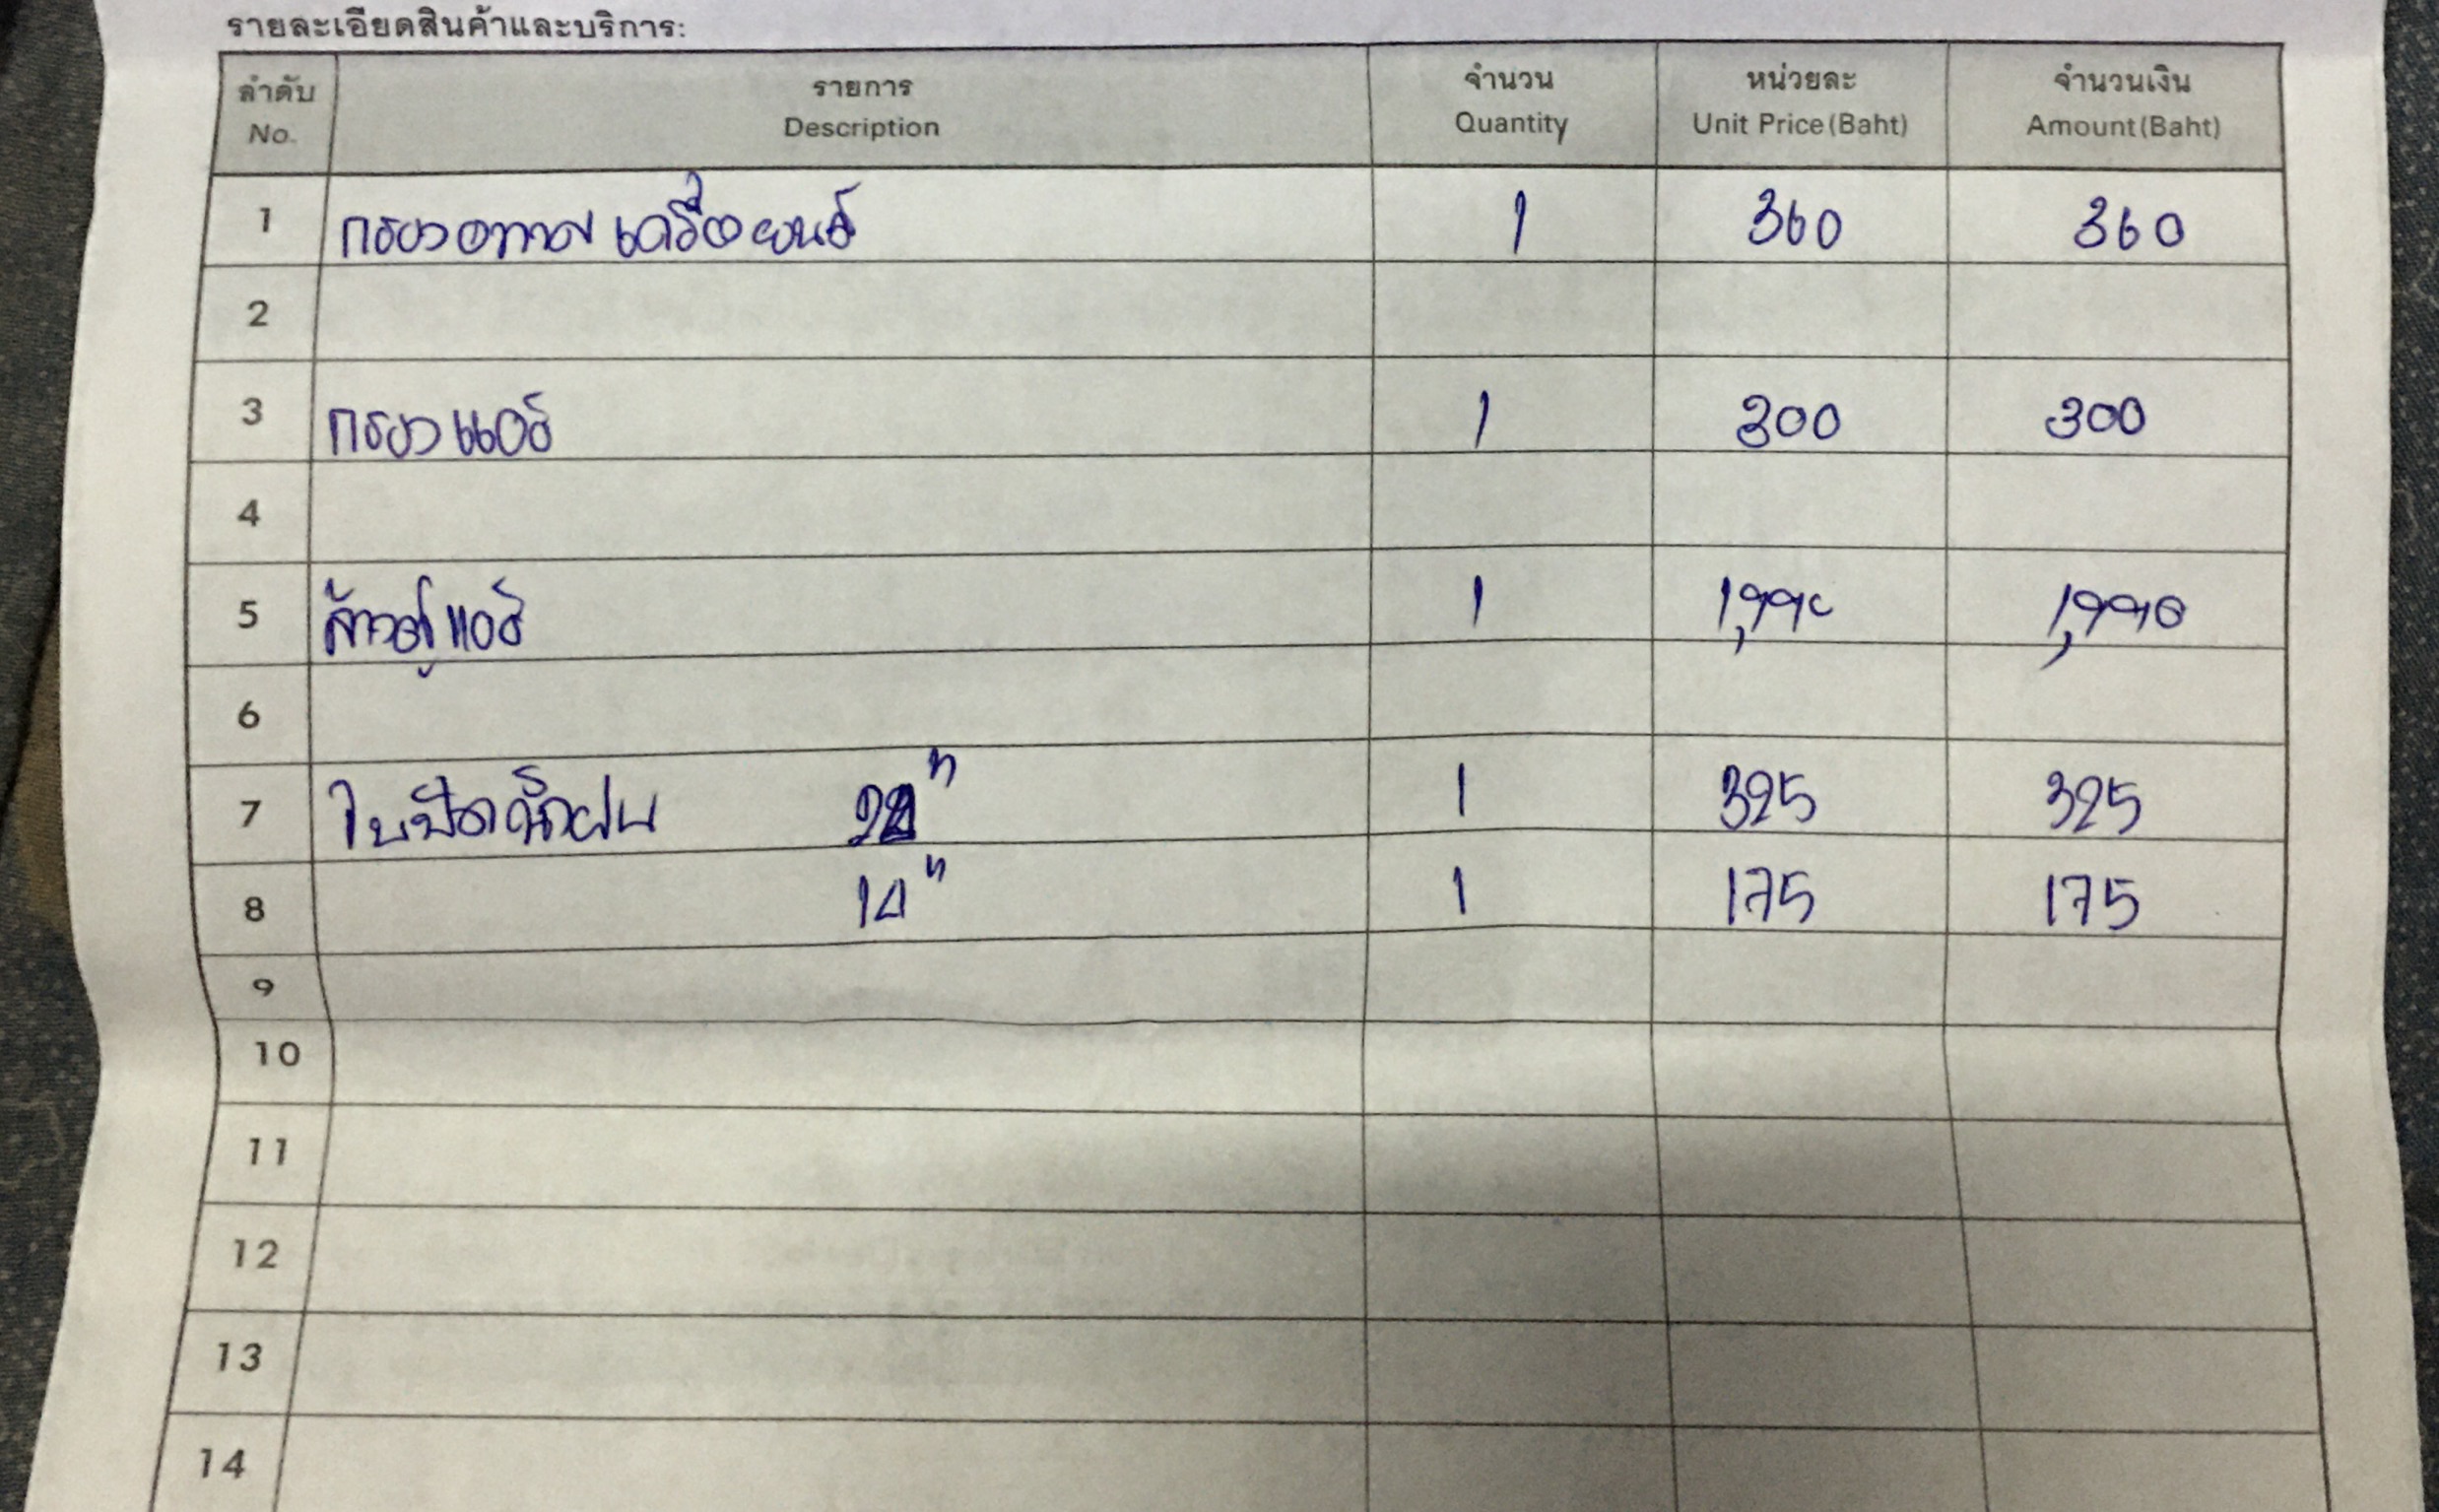 รายละเอียดสินค้าและบริการ:
ลำดับ รายการ จำนวน หน่วยละ จำนวนเงิน
No. Description Quantity Unit Price(Baht) Amount(Baht)
1 กรองอากาศเครื่องยนต์ 1 360 360
2
3 กรองแอร์ 1 300 300
4
5 ล้างตู้แอร์ 1 1,990 1,990
6
7 ใบปัดน้ำฝน 1 325 325
8 14" 1 175 175
9
10
11
12
13
14